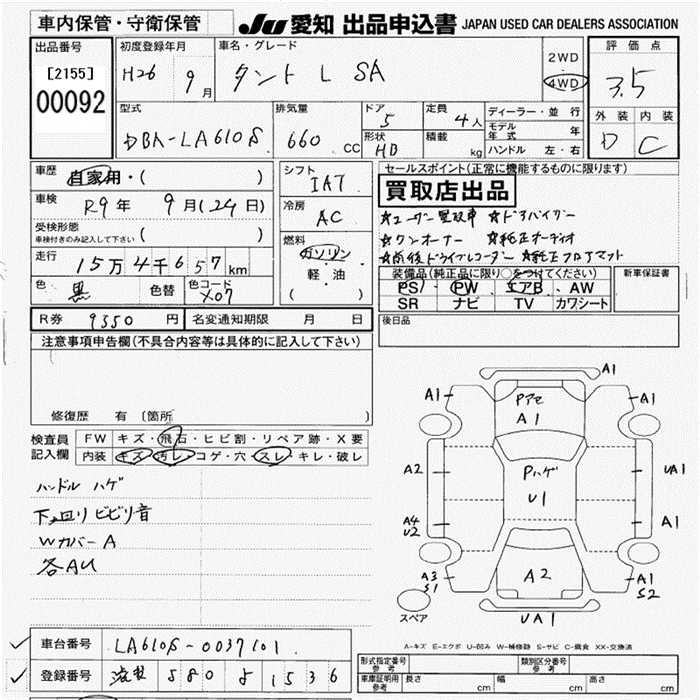 車内保管・守衛保管 JU 愛知 出品申込書 JAPAN USED CAR DEALERS ASSOCIATION
出品番号 [2155] 00092
初度登録年月 H26 9月
車名・グレード タント L SA
2WD 4WD
評価点 3.5
外装 D 内装 C
型式 DBA-LA610S
排気量 660 cc
ドア 5 形状 HB
定員 4人 積載 kg
ディーラー・並行
モデル年式 年
ハンドル 左・右
車歴 自家用・( )
車検 R9年 9月(24日)
受検形態 車検付きのみ記入して下さい ( )
走行 15万4千657km
色 黒 色替 色コード X07
シフト IAT
冷房 AC
燃料 ガソリン 軽・油 ( )
セールスポイント(正常に機能するものに限ります)
買取店出品
☆ユーザー買取車 ☆ドラバイザー
☆ワンオーナー ☆純正オーディオ
☆前後ドライブレコーダー ☆純正フロアマット
装備品(純正品に限り○をつけてください)
PS PW エアB AW
SR ナビ TV カワシート
新車保証書
後日品
R券 9350円 名変通知期限 月 日
注意事項申告欄(不具合内容等は具体的に記入して下さい)
修復歴 有 (箇所
検査員記入欄
FW キズ・飛石・ヒビ割・リペア跡・X要
内装 キズ・汚レ・コゲ・穴・スレ・キレ・破レ
ハンドル ハゲ
下回り ビビリ音
Wカバー A
各AU
A1
A1 Pアセ A1 A1
A2 Pハゲ U1 UA1
A4 U2 A1
A3 S1 A2 A1 S2
スペア UA1
A-キズ E-エクボ U-凹み W-補修跡 S-サビ C-腐食 XX-交換済
車台番号 LA610S-0037101
登録番号 580 1536
型式指定番号 参考 類別区分番号 参考
車庫証明用 参考 長さ cm 幅 cm 高さ cm